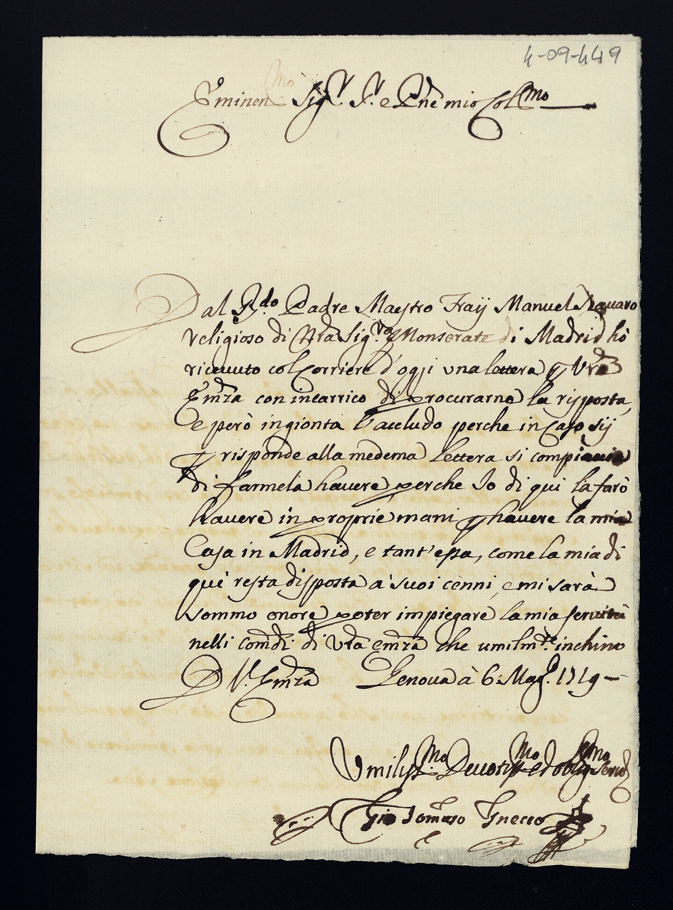 4-09-449
Eminen.mo Sig.r S.r e Pne mio Col.mo
Dal R.do Padre Maestro Fray Manuel Navaro
religioso di Nra Sig.ra Monserate di Madrid hò
riceuuto col Corriere d'oggi vna lettera p Vra
Emza con incarrico di procurarne la risposta,
e però ingionta l'accludo perche in Caso sij
p risponde alla medema lettera si compiaccia
di farmela hauere perche Io di qui la farò
hauere in proprie mani p hauere la mia
Casa in Madrid, e tant'essa, come la mia di
quì resta disposta a' suoi cenni, e mi sarà
sommo onore poter impiegare la mia seruitù
nelli comdi di Vra emza che umilm.te inchino
D V. Emza Genoua à 6 Mag.o 1719
Vmiliss.mo Deuotiss.mo et oblig.mo Seru.
Gio Tomaso Gnecco